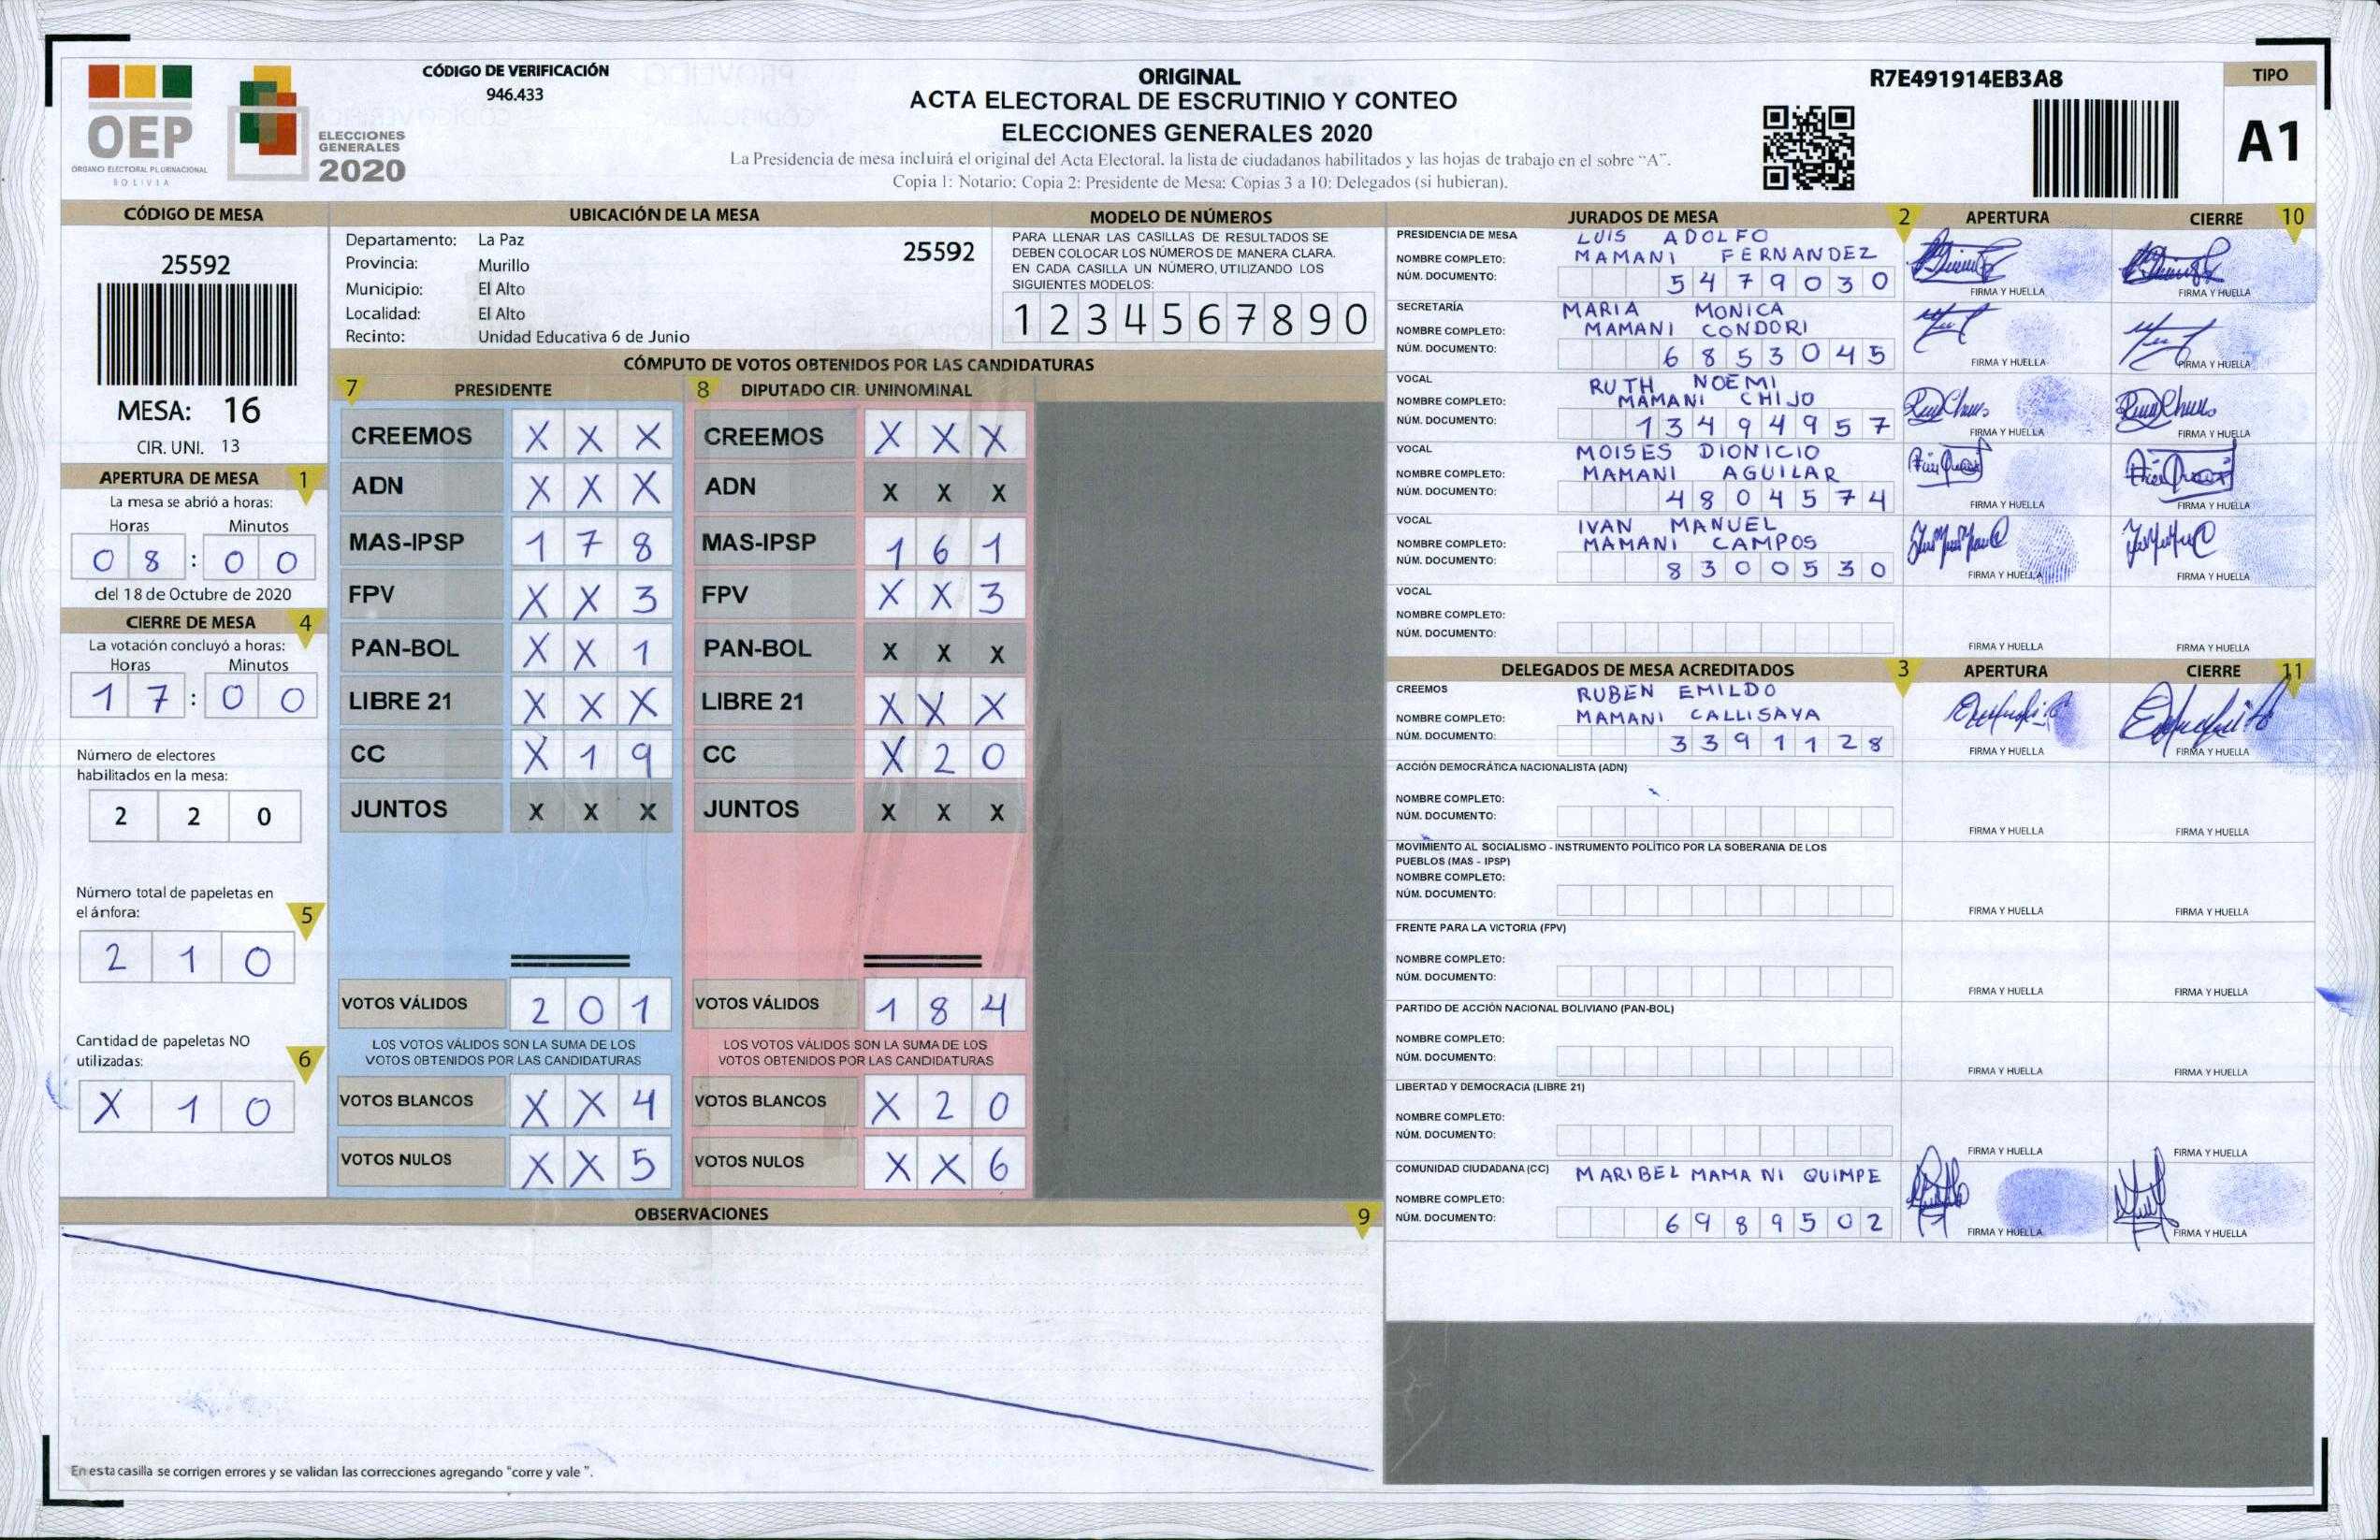 OEP
ÓRGANO ELECTORAL PLURINACIONAL
BOLIVIA
ELECCIONES
GENERALES
2020
CÓDIGO DE VERIFICACIÓN
946.433
ORIGINAL
ACTA ELECTORAL DE ESCRUTINIO Y CONTEO
ELECCIONES GENERALES 2020
La Presidencia de mesa incluirá el original del Acta Electoral, la lista de ciudadanos habilitados y las hojas de trabajo en el sobre "A".
Copia 1: Notario; Copia 2: Presidente de Mesa; Copias 3 a 10: Delegados (si hubieran).
R7E491914EB3A8
TIPO
A1
CÓDIGO DE MESA
25592
MESA: 16
CIR. UNI. 13
APERTURA DE MESA 1
La mesa se abrió a horas:
Horas Minutos
0 8 : 0 0
del 18 de Octubre de 2020
CIERRE DE MESA 4
La votación concluyó a horas:
Horas Minutos
1 7 : 0 0
Número de electores
habilitados en la mesa:
2 2 0
Número total de papeletas en
el ánfora: 5
2 1 0
Cantidad de papeletas NO
utilizadas: 6
X 1 0
UBICACIÓN DE LA MESA
Departamento: La Paz 25592
Provincia: Murillo
Municipio: El Alto
Localidad: El Alto
Recinto: Unidad Educativa 6 de Junio
MODELO DE NÚMEROS
PARA LLENAR LAS CASILLAS DE RESULTADOS SE
DEBEN COLOCAR LOS NÚMEROS DE MANERA CLARA.
EN CADA CASILLA UN NÚMERO, UTILIZANDO LOS
SIGUIENTES MODELOS:
1 2 3 4 5 6 7 8 9 0
CÓMPUTO DE VOTOS OBTENIDOS POR LAS CANDIDATURAS
7 PRESIDENTE 8 DIPUTADO CIR. UNINOMINAL
CREEMOS X X X CREEMOS X X X
ADN X X X ADN X X X
MAS-IPSP 1 7 8 MAS-IPSP 1 6 1
FPV X X 3 FPV X X 3
PAN-BOL X X 1 PAN-BOL X X X
LIBRE 21 X X X LIBRE 21 X X X
CC X 1 9 CC X 2 0
JUNTOS X X X JUNTOS X X X
VOTOS VÁLIDOS 2 0 1 VOTOS VÁLIDOS 1 8 4
LOS VOTOS VÁLIDOS SON LA SUMA DE LOS LOS VOTOS VÁLIDOS SON LA SUMA DE LOS
VOTOS OBTENIDOS POR LAS CANDIDATURAS VOTOS OBTENIDOS POR LAS CANDIDATURAS
VOTOS BLANCOS X X 4 VOTOS BLANCOS X 2 0
VOTOS NULOS X X 5 VOTOS NULOS X X 6
OBSERVACIONES 9
En esta casilla se corrigen errores y se validan las correcciones agregando "corre y vale ".
JURADOS DE MESA 2 APERTURA CIERRE 10
PRESIDENCIA DE MESA LUIS ADOLFO
NOMBRE COMPLETO: MAMANI FERNANDEZ
NÚM. DOCUMENTO: 5 4 7 9 0 3 0
FIRMA Y HUELLA FIRMA Y HUELLA
SECRETARÍA MARIA MONICA
NOMBRE COMPLETO: MAMANI CONDORI
NÚM. DOCUMENTO: 6 8 5 3 0 4 5
FIRMA Y HUELLA FIRMA Y HUELLA
VOCAL RUTH NOEMI
NOMBRE COMPLETO: MAMANI CHIJO
NÚM. DOCUMENTO: 1 3 4 9 4 9 5 7
FIRMA Y HUELLA FIRMA Y HUELLA
VOCAL MOISES DIONICIO
NOMBRE COMPLETO: MAMANI AGUILAR
NÚM. DOCUMENTO: 4 8 0 4 5 7 4
FIRMA Y HUELLA FIRMA Y HUELLA
VOCAL IVAN MANUEL
NOMBRE COMPLETO: MAMANI CAMPOS
NÚM. DOCUMENTO: 8 3 0 0 5 3 0
FIRMA Y HUELLA FIRMA Y HUELLA
VOCAL
NOMBRE COMPLETO:
NÚM. DOCUMENTO:
FIRMA Y HUELLA FIRMA Y HUELLA
DELEGADOS DE MESA ACREDITADOS 3 APERTURA CIERRE 11
CREEMOS RUBEN EMILDO
NOMBRE COMPLETO: MAMANI CALLISAYA
NÚM. DOCUMENTO: 3 3 9 1 1 2 8
FIRMA Y HUELLA FIRMA Y HUELLA
ACCIÓN DEMOCRÁTICA NACIONALISTA (ADN)
NOMBRE COMPLETO:
NÚM. DOCUMENTO:
FIRMA Y HUELLA FIRMA Y HUELLA
MOVIMIENTO AL SOCIALISMO - INSTRUMENTO POLÍTICO POR LA SOBERANIA DE LOS
PUEBLOS (MAS - IPSP)
NOMBRE COMPLETO:
NÚM. DOCUMENTO:
FIRMA Y HUELLA FIRMA Y HUELLA
FRENTE PARA LA VICTORIA (FPV)
NOMBRE COMPLETO:
NÚM. DOCUMENTO:
FIRMA Y HUELLA FIRMA Y HUELLA
PARTIDO DE ACCIÓN NACIONAL BOLIVIANO (PAN-BOL)
NOMBRE COMPLETO:
NÚM. DOCUMENTO:
FIRMA Y HUELLA FIRMA Y HUELLA
LIBERTAD Y DEMOCRACIA (LIBRE 21)
NOMBRE COMPLETO:
NÚM. DOCUMENTO:
FIRMA Y HUELLA FIRMA Y HUELLA
COMUNIDAD CIUDADANA (CC) MARIBEL MAMANI QUIMPE
NOMBRE COMPLETO:
NÚM. DOCUMENTO: 6 9 8 9 5 0 2
FIRMA Y HUELLA FIRMA Y HUELLA